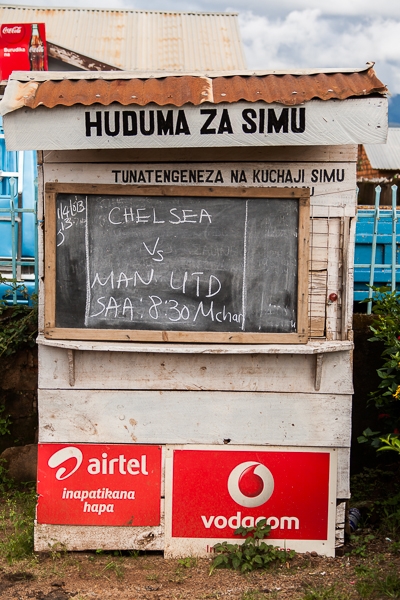 Coca-Cola
Coca-Cola
Burudika
na
HUDUMA ZA SIMU
TUNATENGENEZA NA KUCHAJI SIMU
CHELSEA
Vs
MAN UTD
SAA: 8:30 Mchan
airtel
inapatikana
hapa
vodacom